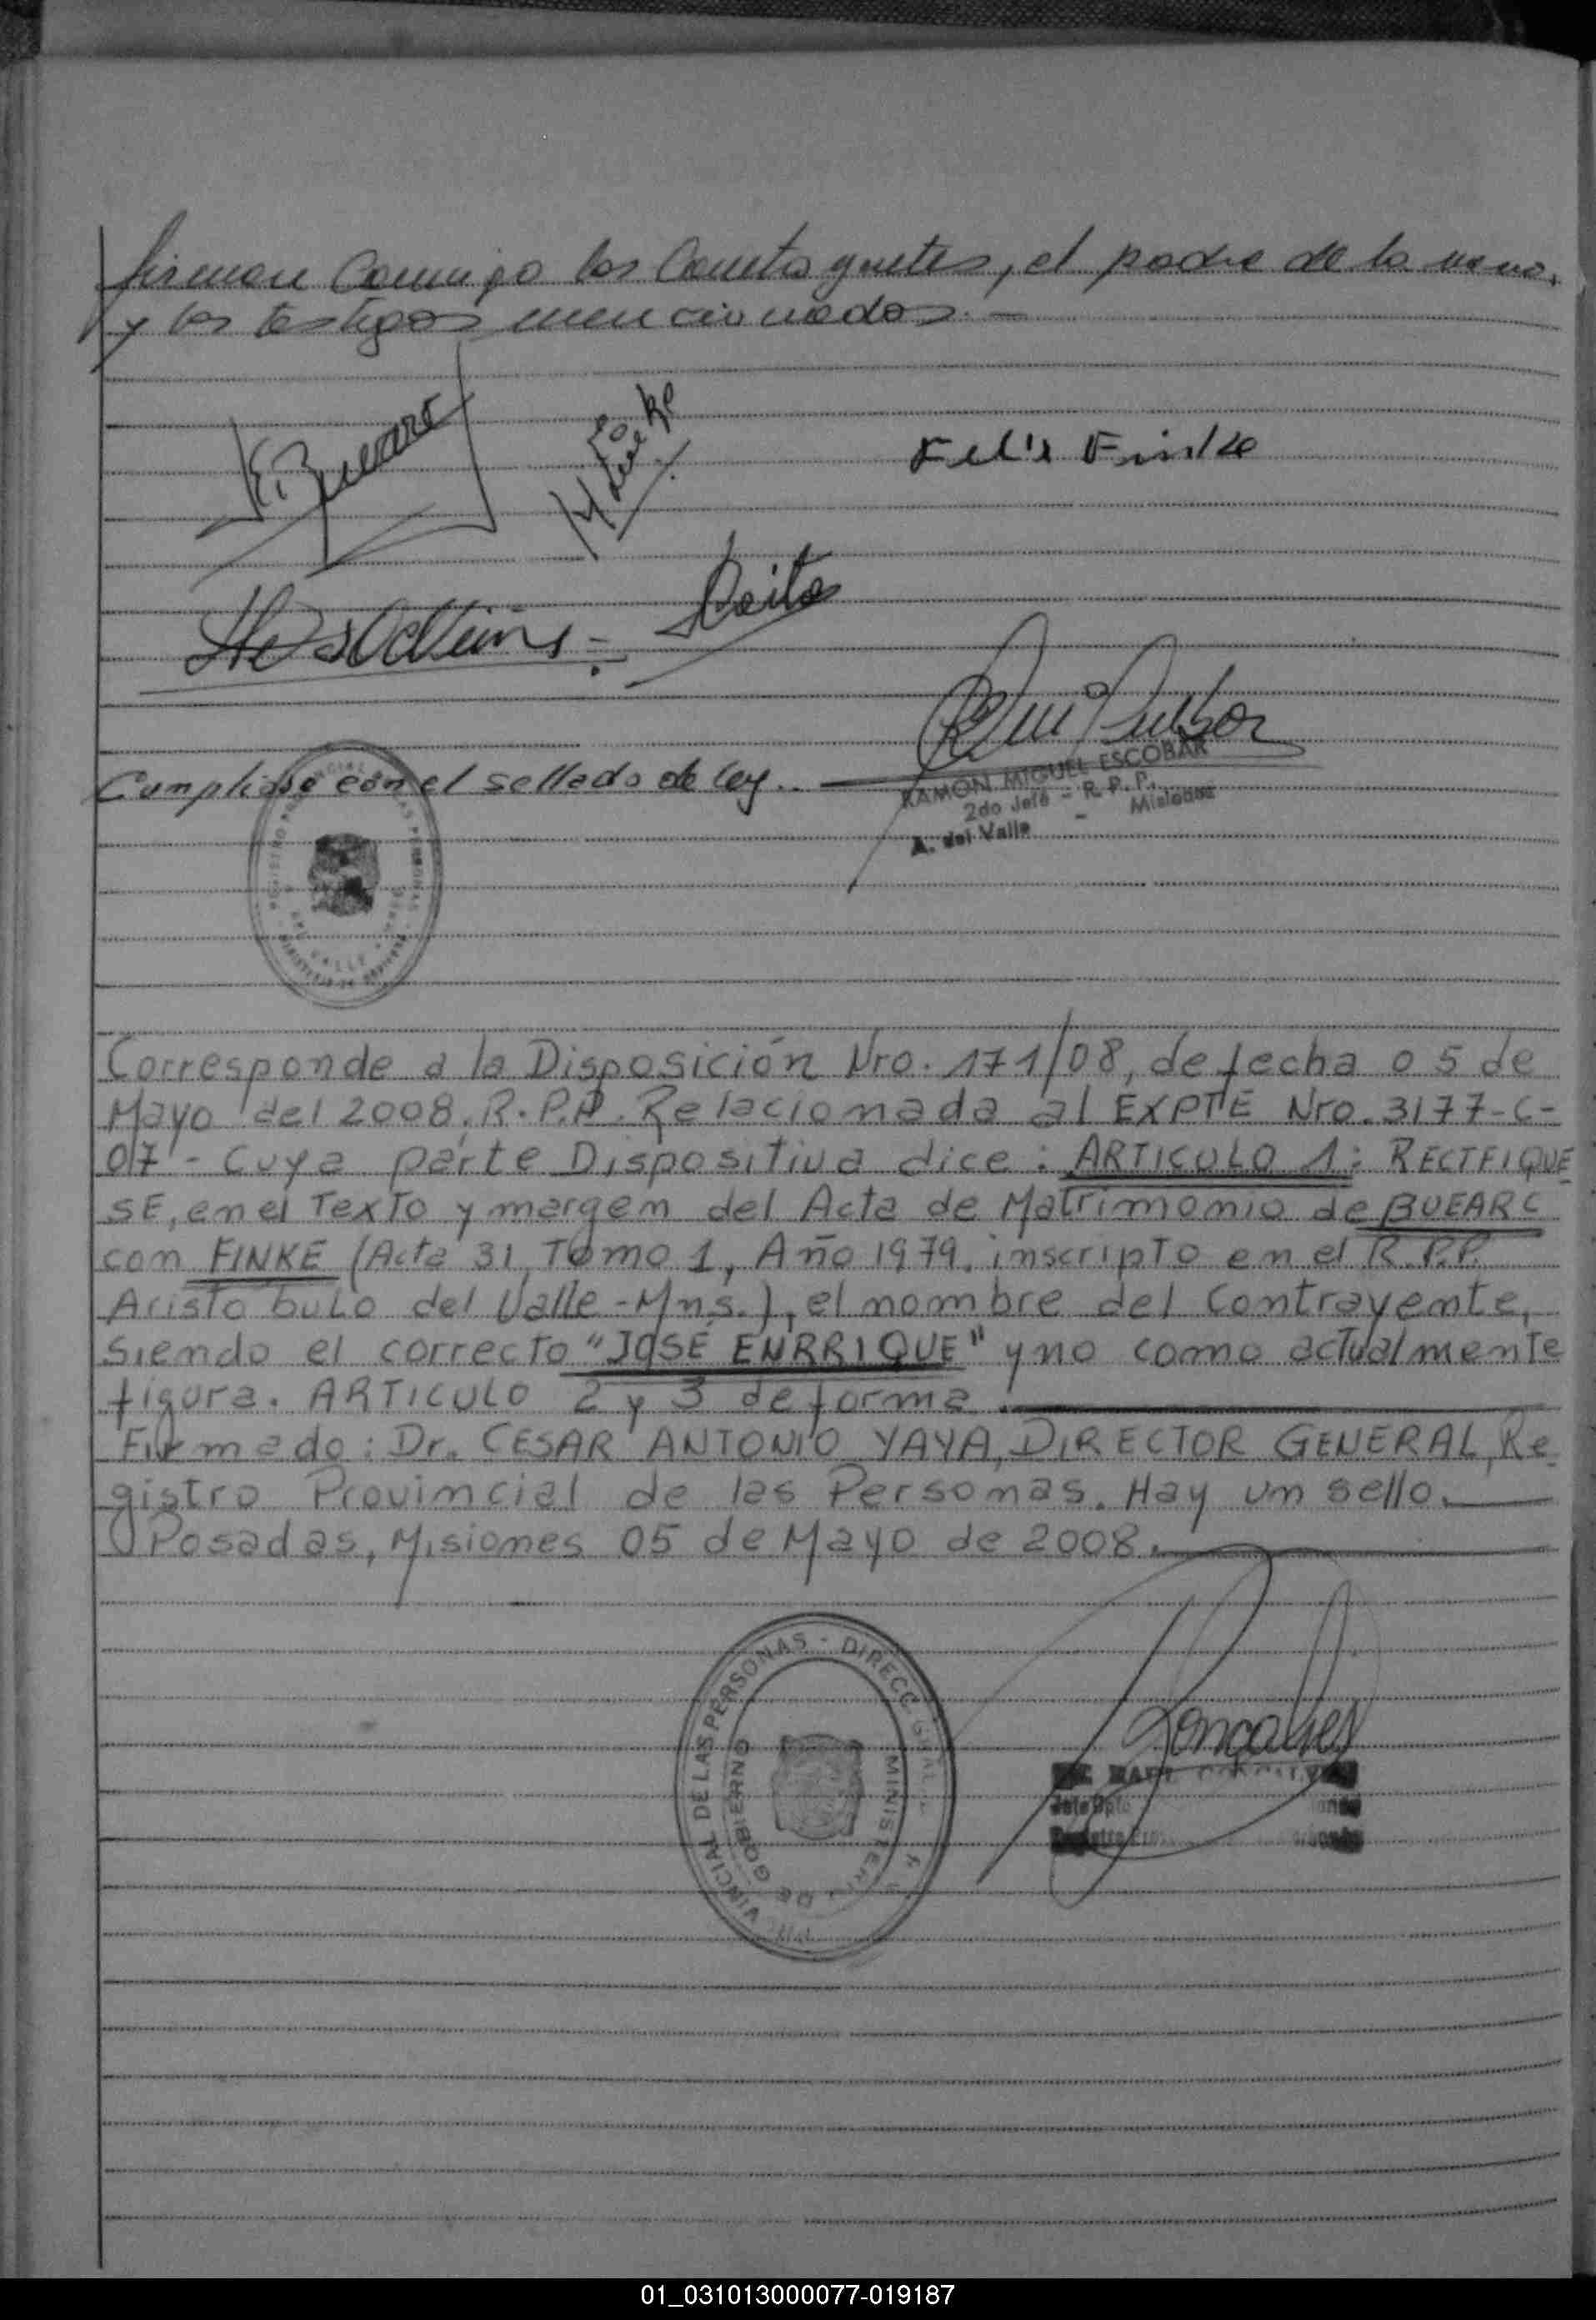 firman conmigo los contrayentes, el padre de la novia,
y los testigos mencionados.-
Felix Finke
Cumpliose con el sellado de ley..
RAMON MIGUEL ESCOBAR
2do Jefe - R. P. P.
A. del Valle - Misiones
Corresponde a la Disposición Nro. 171/08, de fecha 05 de
Mayo del 2008, R.P.P. Relacionada al EXPTE Nro. 3177-C-
07 - Cuya parte Dispositiva dice: ARTICULO 1: RECTFIQUE
SE, en el Texto y margen del Acta de Matrimonio de BUEARC
con FINKE (Acta 31, Tomo 1, Año 1979, inscripto en el R.P.P.
Aristobulo del Valle-Mns.), el nombre del Contrayente,
siendo el correcto "JOSÉ ENRRIQUE" y no como actualmente
figura. ARTICULO 2 y 3 de forma.
Firmado: Dr. CESAR ANTONIO YAYA, DIRECTOR GENERAL, Re
gistro Provincial de las Personas. Hay un sello.
Posadas, Misiones 05 de Mayo de 2008.
VINCIAL DE LAS PERSONAS - DIRECC. GRAL.
MINISTERIO DE GOBIERNO
Goncalves
01_031013000077-019187